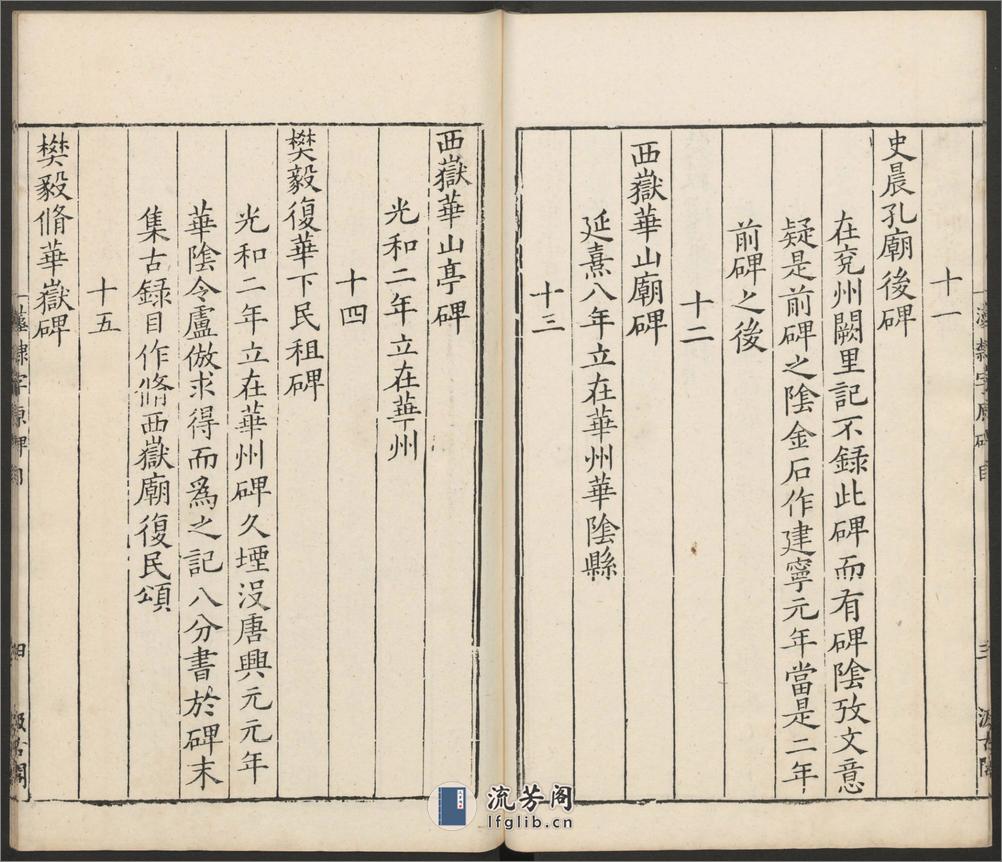 十一
史晨孔廟後碑
在兖州闕里記不錄此碑而有碑陰攷文意
疑是前碑之陰金石作建寧元年當是二年
前碑之後
十二
西嶽華山廟碑
延熹八年立在華州華陰縣
十三
西嶽華山亭碑
光和二年立在華州
十四
樊毅復華下民租碑
光和二年立在華州碑久堙没唐興元元年
華陰令盧倣求得而爲之記八分書於碑末
集古録目作脩西嶽廟復民頌
十五
樊毅脩華嶽碑
漢隸字源碑目
三
汲古閣
漢隸字源碑目
四
汲古閣
流芳阁
lfglib.cn